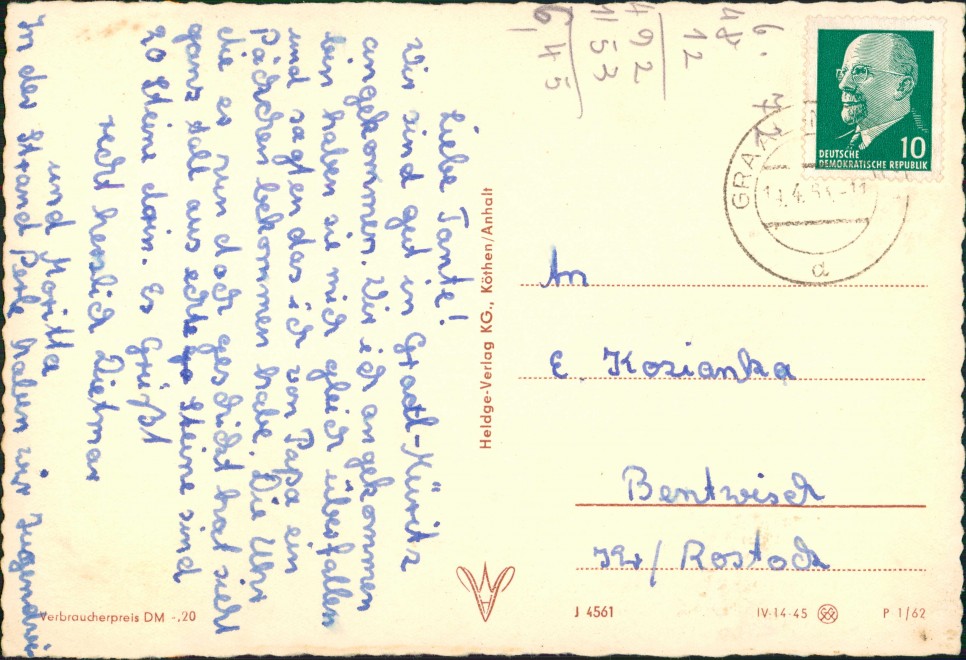 Liebe Tante!
Wir sind gut in Graal-Müritz
angekommen. Wie ich angekommen
bin haben sie mich gleich überfallen
und sagten das ich von Papa ein
Päckchen bekommen habe. Die Uhr
die er nun doch geschickt hat sieht
ganz toll aus echte Steine sind
20 Steine drin. Es Grüßt
recht herzlich Dietmar
und Moritta
In der Strand Perle haben wir
Heldge-Verlag KG., Köthen/Anhalt
Verbraucherpreis DM -.20
48
12
492
1153
6,45
DEUTSCHE
DEMOKRATISCHE REPUBLIK
10
GRAAL
d
An
E. Kozianka
Bentwisch
Kr/Rostock
J 4561
IV-14-45
P 1/62